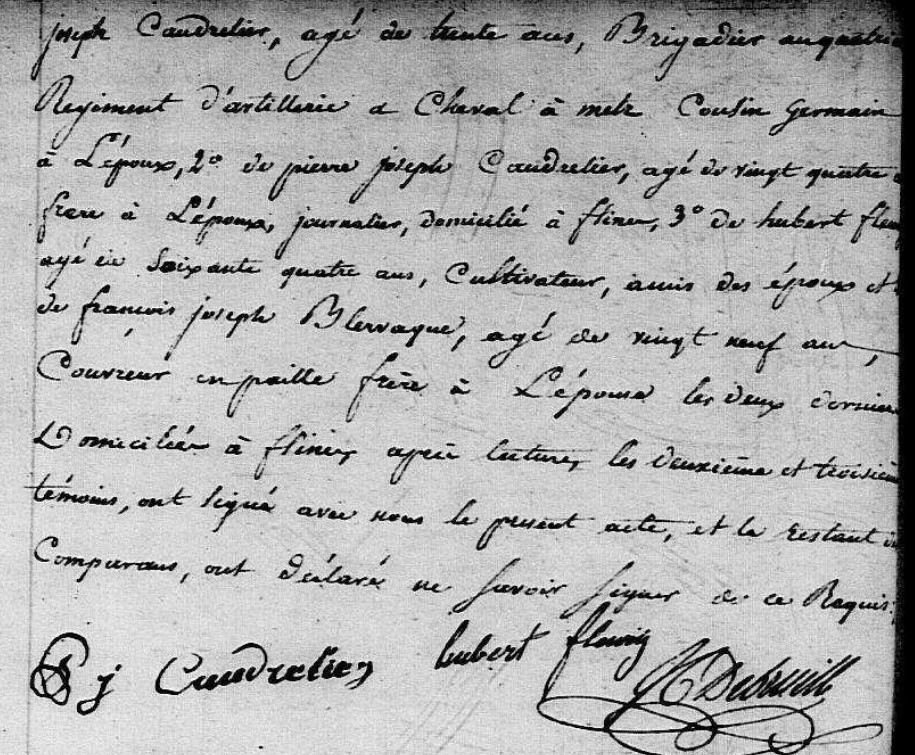 joseph Caudrelier, agé de trente ans, Brigadier au quatri
Regiment d'artillerie a Cheval à metz Cousin Germain
à L'époux, 2º de pierre joseph Caudrelier, agé de vingt quatre
frere à L'époux, journalier, domicilié à flines, 3º de hubert fleu
agé de Soixante quatre ans, Cultivateur, amis des époux et
de françois joseph Blervaque, agé de vingt neuf ans,
Couvreur en paille frère à L'épouse les deux dernier
Domiciliés à flines, après lecture, les deuxième et troisièm
témoins, ont signé avec nous le present acte, et le restant d
Comparans, ont déclaré ne savoir signer de ce Requis.
p j Caudrelier hubert fleurij